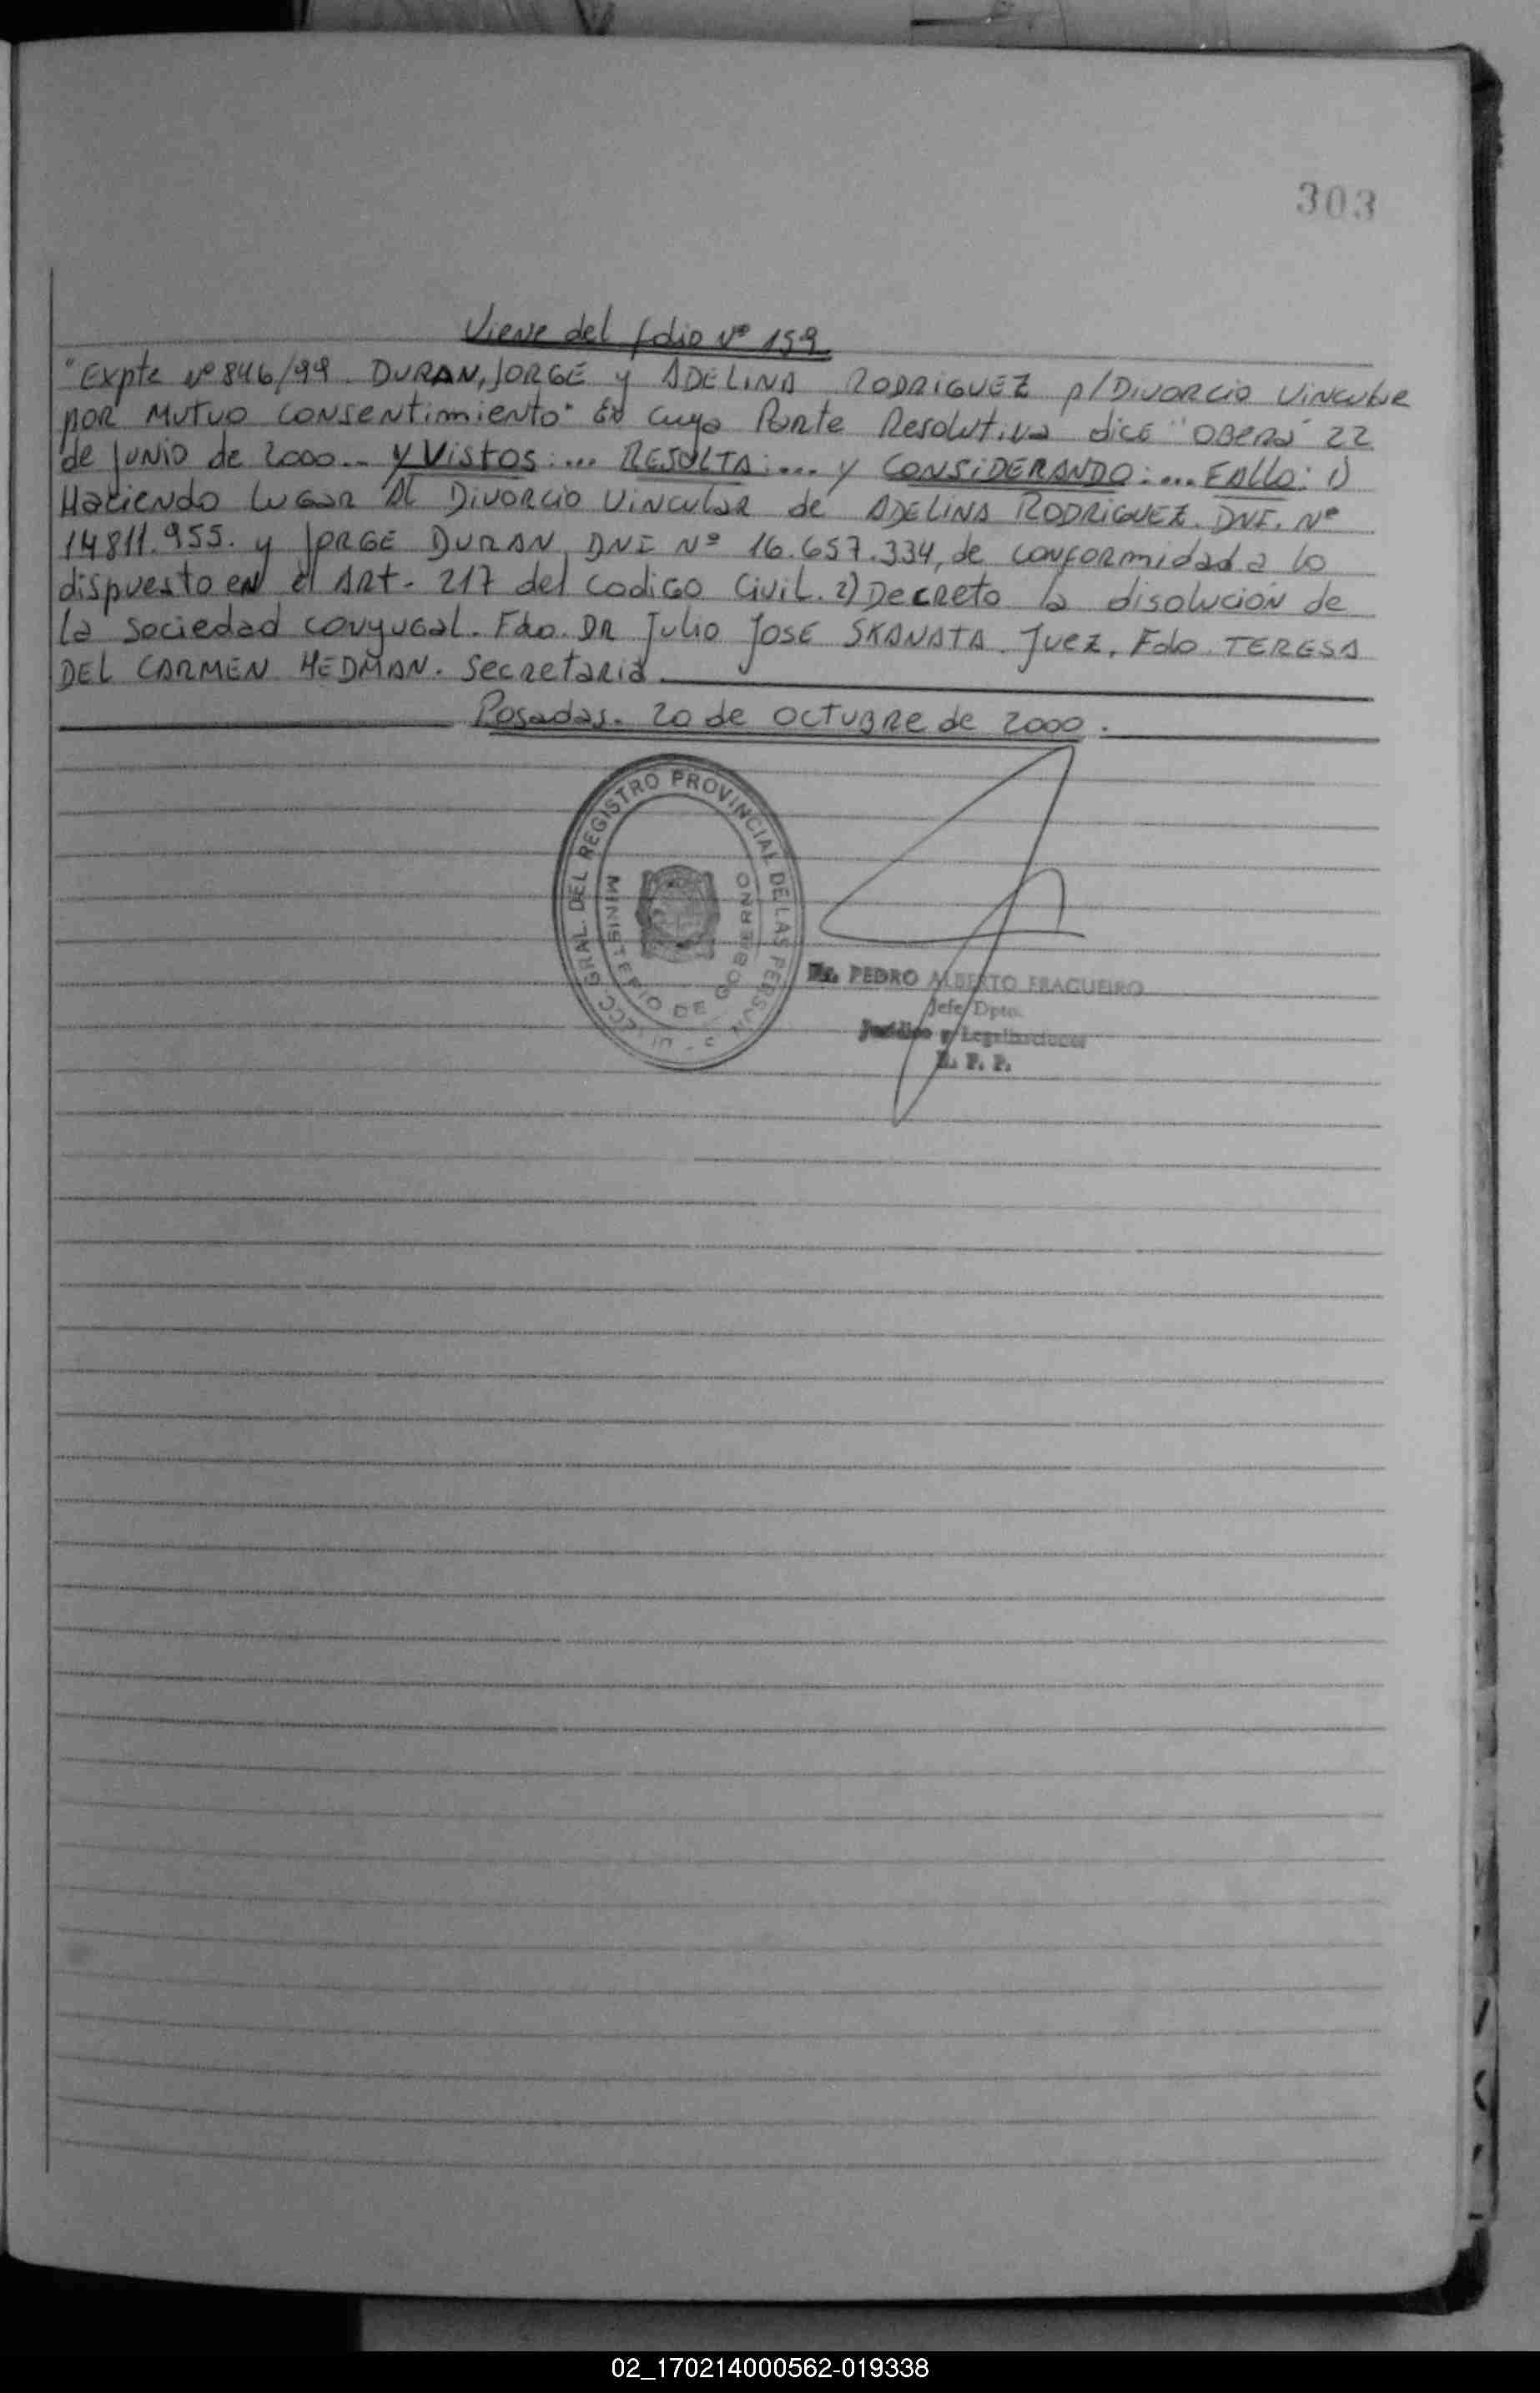 303
Viene del folio Nº 159
"Expte Nº 846/99. DURAN, JORGE y ADELINA RODRIGUEZ p/DIVORCIO VINCULAR
POR MUTUO CONSENTIMIENTO" EN cuya Parte Resolutiva dice "OBERA 22
de JUNIO de 2000.. Y VISTOS:... RESULTA:... y CONSIDERANDO:... FALLO: 1)
Haciendo LUGAR AL DIVORCIO VINCULAR de ADELINA RODRIGUEZ. DNI. Nº
14811.955. y JORGE DURAN, DNI Nº 16.657.334, de conformidad a lo
dispuesto en el ART. 217 del CODIGO CIVIL. 2) Decreto la disolución de
la sociedad conyugal. Fdo. DR Julio José SKANATA. Juez. Fdo. TERESA
DEL CARMEN HEDMAN. Secretaria.
Posadas. 20 de OCTUBRE de 2000.
GRAL. DEL REGISTRO PROVINCIAL DE LAS PERSON
MINISTERIO DE GOBIERNO
Dr. PEDRO ALBERTO FRAGUEIRO
Jefe Dpto.
Jurídico y Legalizaciones
R. P. P.
02_170214000562-019338